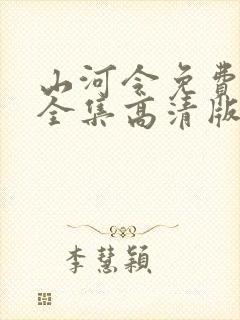 山河令免費
全集高清版
李慧穎